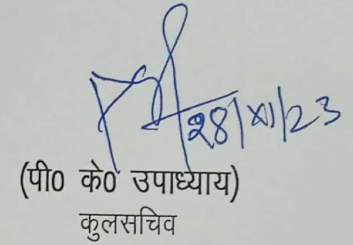 28/XI/23
(पी० के० उपाध्याय)
कुलसचिव